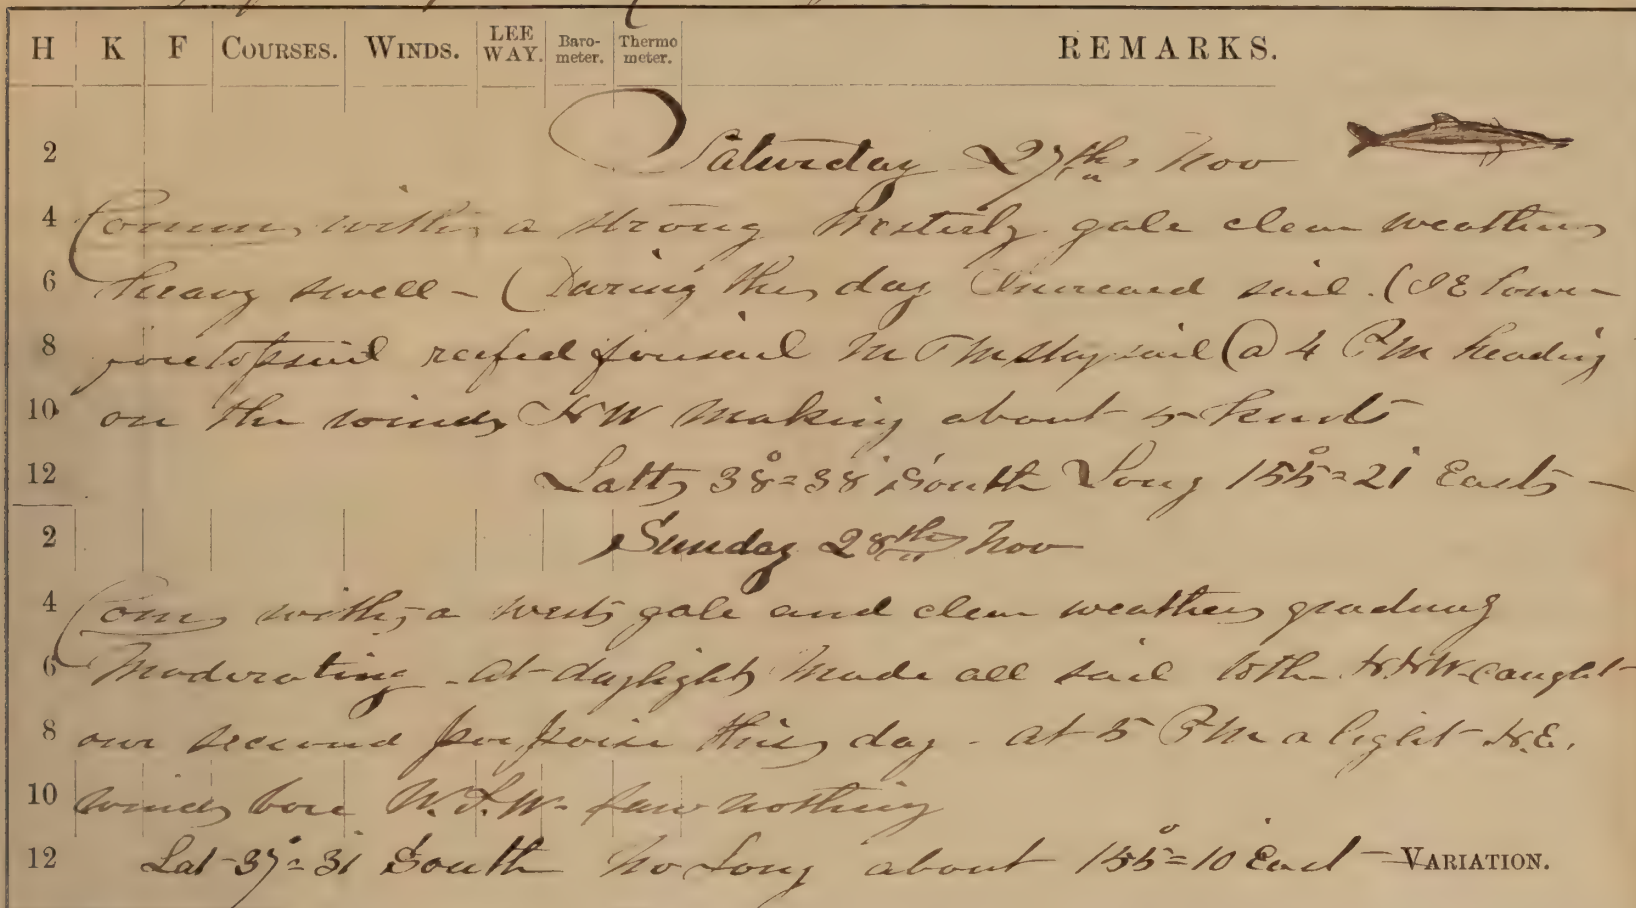 H K F COURSES. WINDS. LEE WAY. Barometer. Thermometer. REMARKS.
2 Saturday 27th Nov
4 Comm with a strong Westerly gale clear weather
6 heavy swell - During the day increased sail.
8 foretopsail reefed foresail M T M staysail @ 4 PM heading
10 on the wind NW making about 5 knots
12 Latt 38°=38' South Long 155°=21' East
2 Sunday 28th Nov
4 Com with a west gale and clear weather
6 Moderating - at daylight made all sail to the N.NW - caught
8 our second porpoise this day - at 5 PM a light N.E.
10 wind bore W.S.W. saw nothing
12 Lat 37°=31' South no Long about 155°=10 East VARIATION.